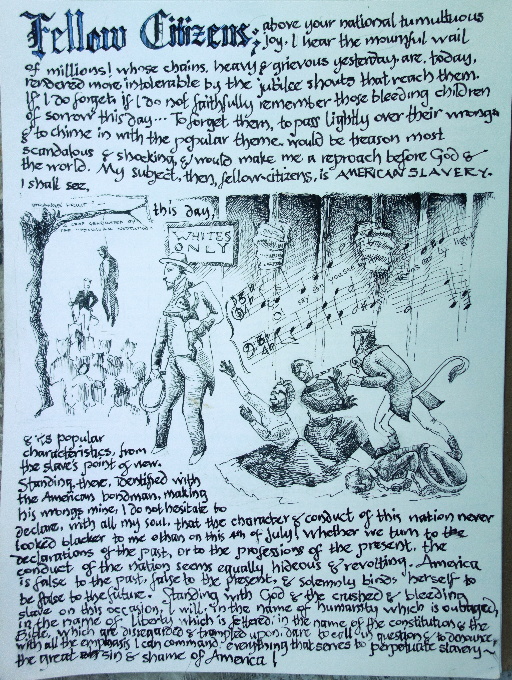 Fellow Citizens; above your national tumultuous
joy, I hear the mournful wail
of millions! whose chains, heavy & grievous yesterday, are, today,
rendered more intolerable by the jubilee shouts that reach them.
If I do forget, if I do not faithfully remember those bleeding children
of sorrow this day... To forget them, to pass lightly over their wrongs
& to chime in with the popular theme, would be treason most
scandalous & shocking, & would make me a reproach before God &
the world. My subject, then, fellow-citizens, is AMERICAN SLAVERY.
I shall see,
this day,
WHITES
ONLY
& its popular
characteristics, from
the slave's point of view.
Standing, there, identified with
the American bondman, making
his wrongs mine, I do not hesitate to
declare, with all my soul, that the character & conduct of this nation never
looked blacker to me than on this 4th of July! Whether we turn to the
declarations of the past, or to the professions of the present, the
conduct of the nation seems equally hideous & revolting. America
is false to the past, false to the present, & solemnly binds herself to
be false to the future. Standing with God & the crushed & bleeding
slave on this occasion, I will, in the name of humanity which is outraged,
in the name of liberty which is fettered, in the name of the constitution & the
Bible, which are disregarded & trampled upon, dare to call in question & to denounce,
with all the emphasis I can command, everything that serves to perpetuate slavery~
the great sin & shame of America!